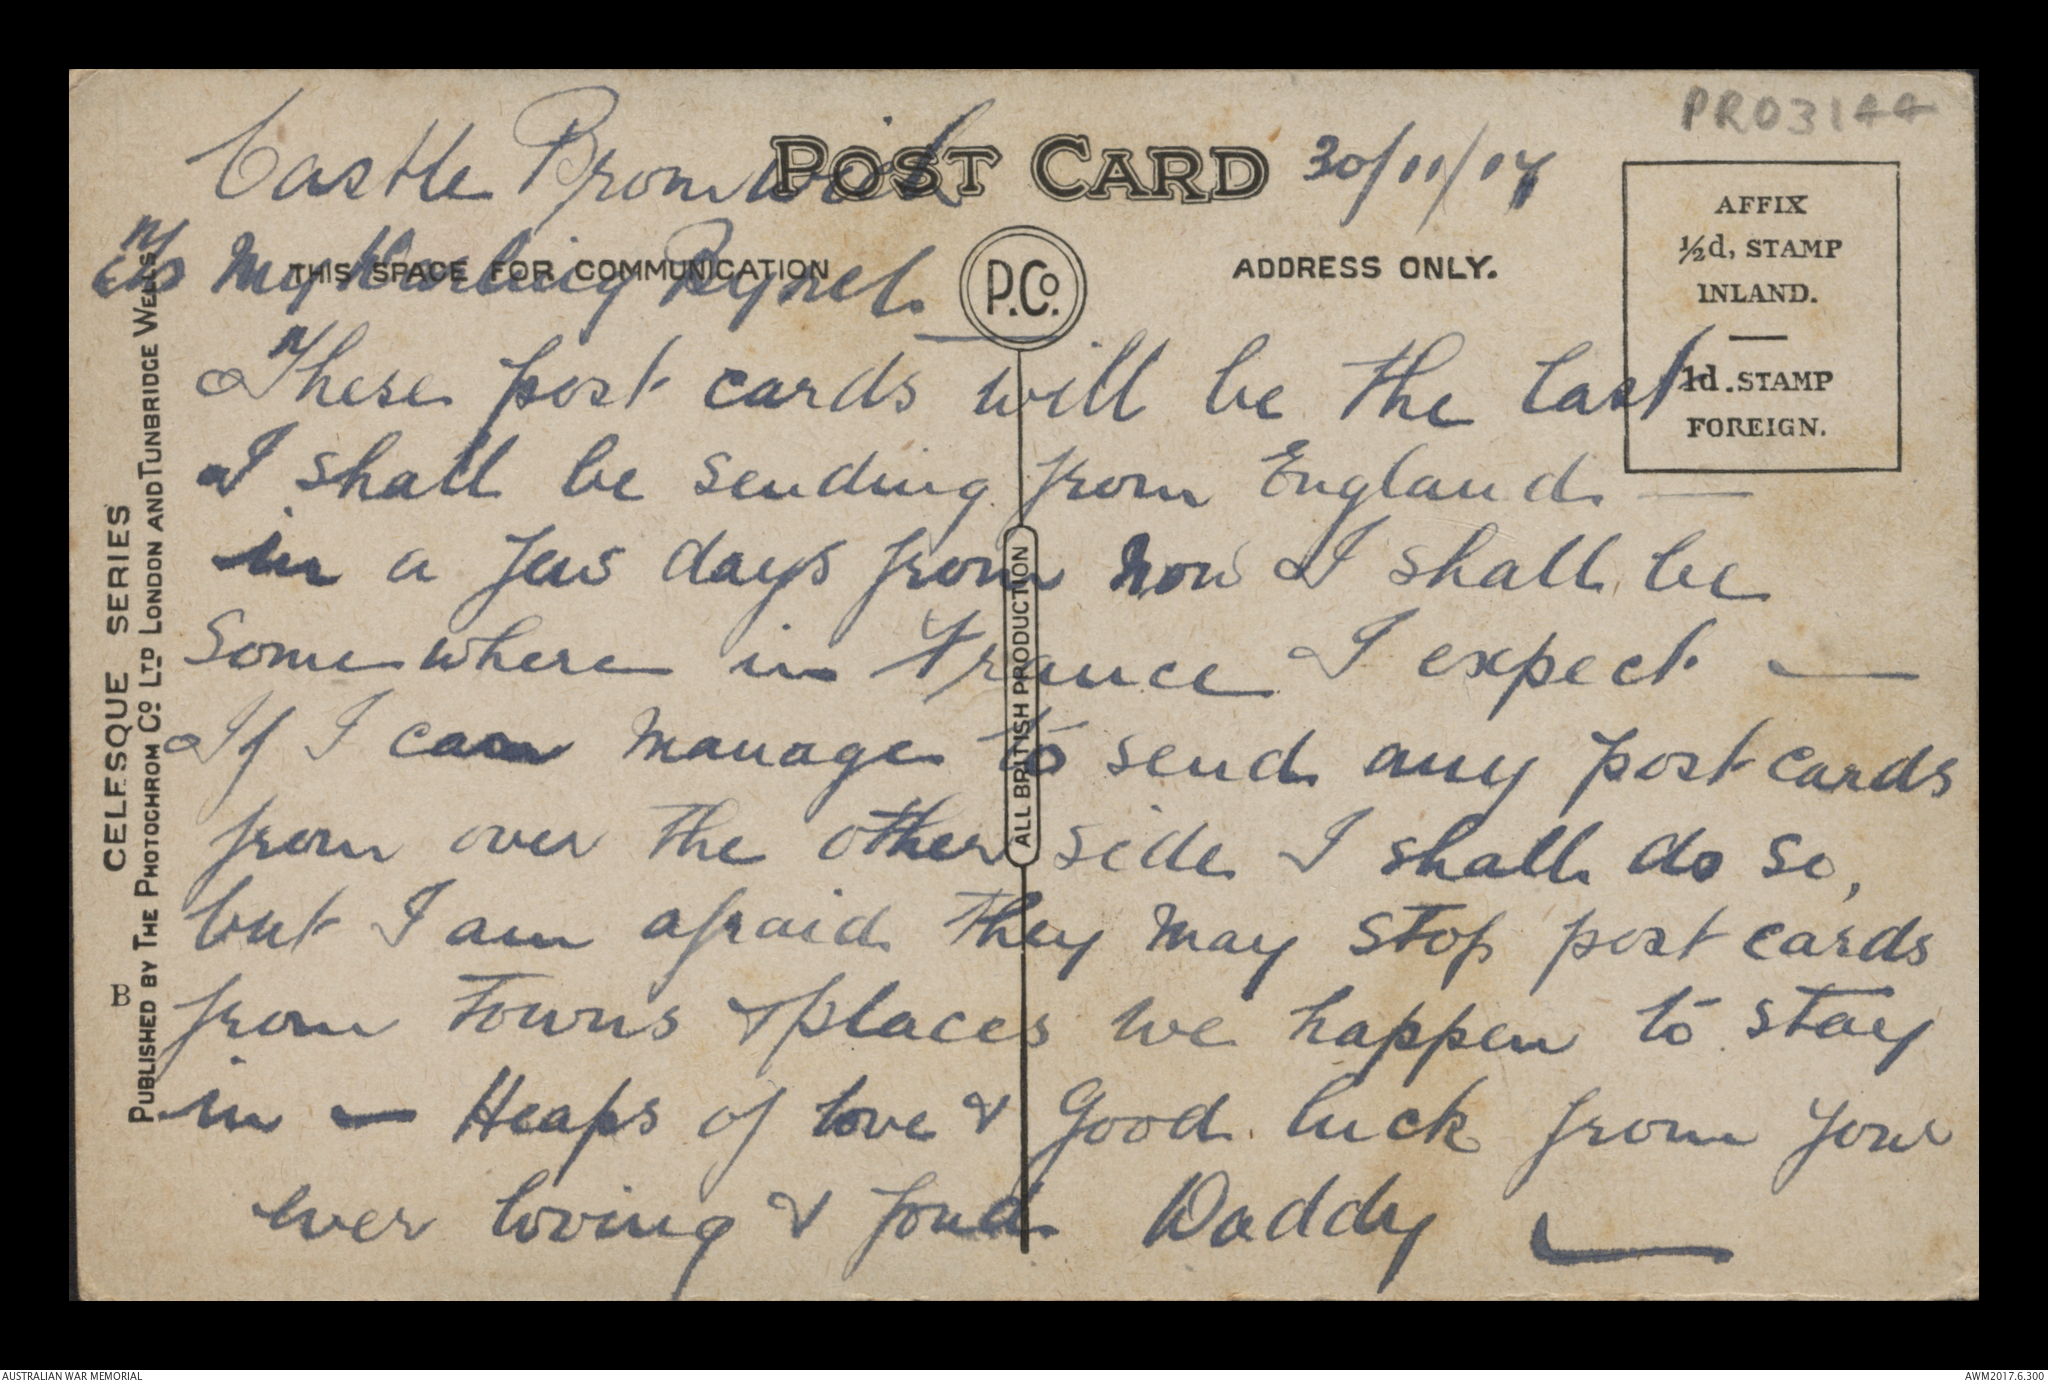 PR03144
Castle Bromwich
POST CARD
30/11/17
AFFIX
½d, STAMP
INLAND.
1d. STAMP
FOREIGN.
THIS SPACE FOR COMMUNICATION
ADDRESS ONLY.
P.Co.
To My darling
These post cards will be the last
I shall be sending from England —
in a few days from now I shall be
Somewhere in France I expect —
If I can manage to send any post cards
from over the other side I shall do so,
but I am afraid they may stop post cards
from Towns & places we happen to stay
in — Heaps of love & Good luck from your
ever loving & fond Daddy —
ALL BRITISH PRODUCTION
CELESQUE SERIES
PUBLISHED BY THE PHOTOCHROM CO. LTD LONDON AND TUNBRIDGE WELLS
B
AUSTRALIAN WAR MEMORIAL
AWM2017.6.300